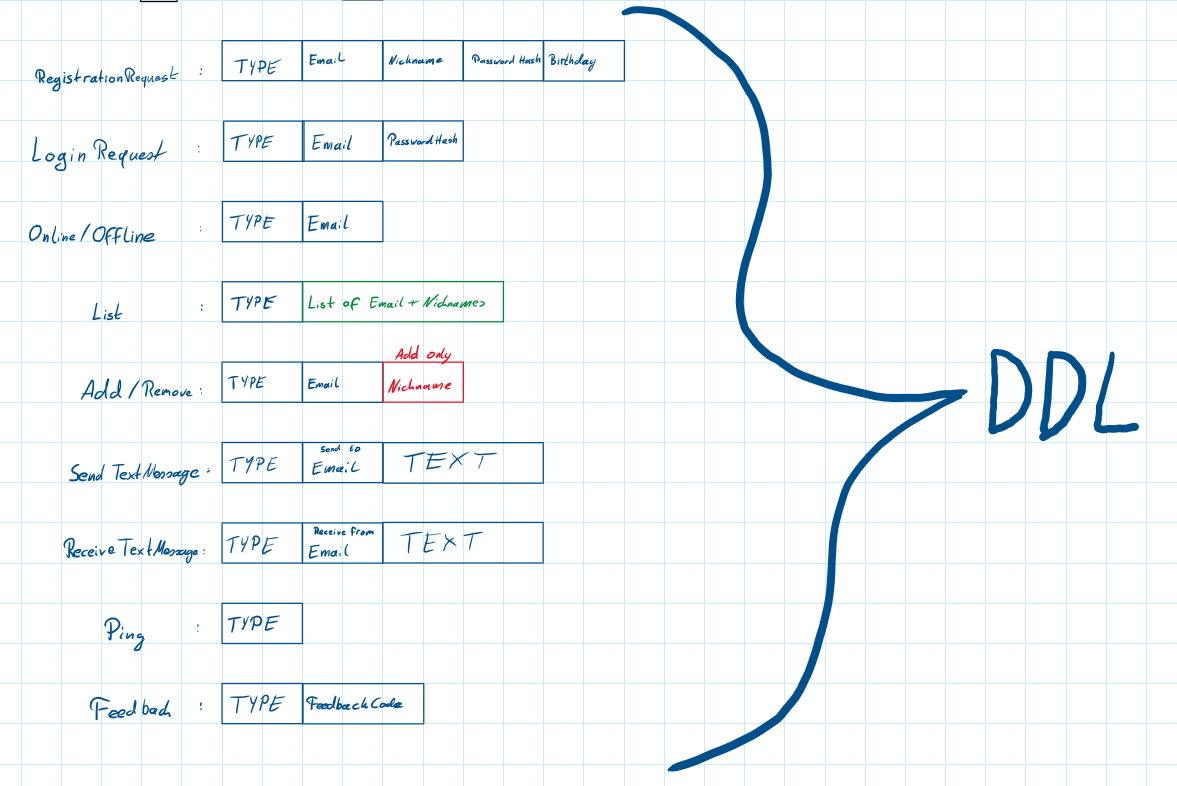 RegistrationRequest : TYPE Email Nickname Password Hash Birthday
Login Request : TYPE Email PasswordHash
Online/Offline : TYPE Email
List : TYPE List of Email + Nicknames
Add only
Add/Remove : TYPE Email Nickname
Send to
Send TextMessage : TYPE Email TEXT
Receive from
Receive TextMessage : TYPE Email TEXT
Ping : TYPE
Feedback : TYPE FeedbackCode
DDL